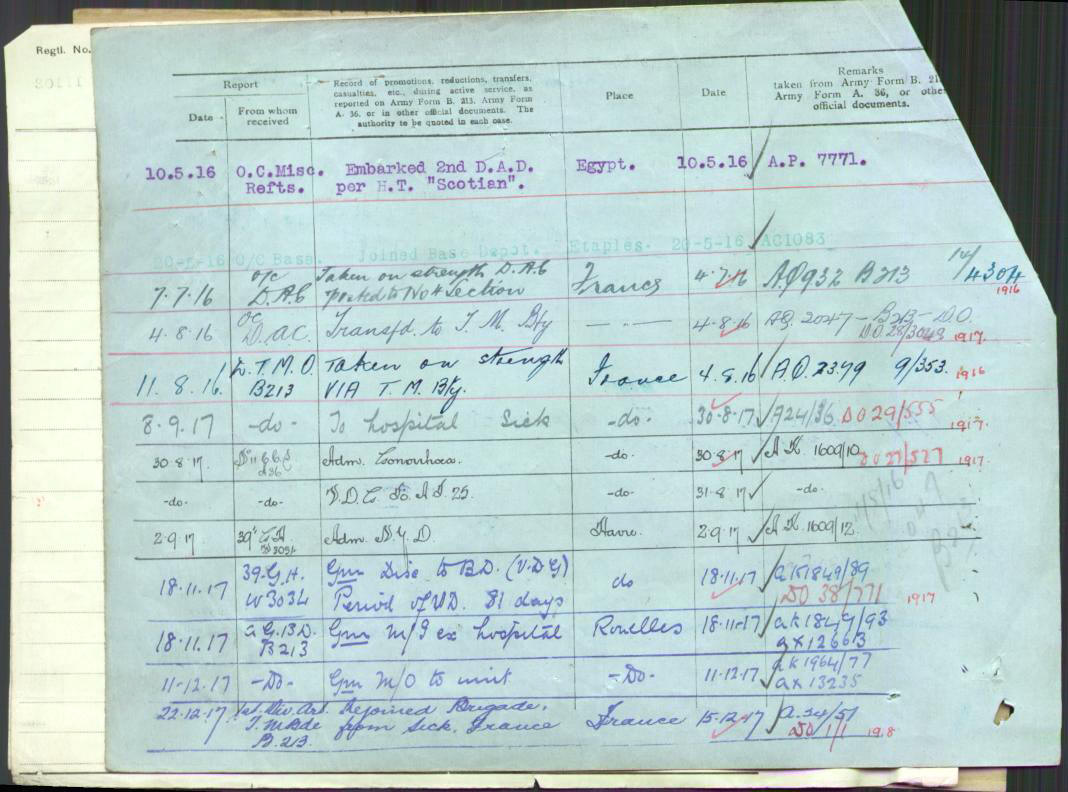 Regtl. No.
Report
Record of promotions, reductions, transfers,
casualties, etc., during active service, as
reported on Army Form B. 213, Army Form
A. 36, or in other official documents. The
authority to be quoted in each case.
Place
Date
Remarks
taken from Army Form B. 21
Army Form A. 36, or othe
official documents.
Date
From whom
received
10.5.16 O.C.Misc. Embarked 2nd D.A.D. Egypt. 10.5.16 A.P. 7771.
Refts. per H.T. "Scotian".
20-5-16 O/C Base. Joined Base Depot. Etaples. 20-5-16 AC1083
7.7.16 O/C Taken on strength D.A.C France 4-7-16 A.Q932 B213 14/4304
D.A.C posted to No 4 Section 1916
4.8.16 OC Transfd. to T. M. Bty — 4-8-16 AQ. 2047 - B213 - D.O.
D.A.C. D.O. 28/3049 1917.
11.8.16. D.T.M.O. Taken on strength France 4.8.16 A.Q. 2379 9/353. 1916
B213 V1A T. M. Bty.
8.9.17 -do- To hospital Sick -do- 30-8-17 A24/36 DO 29/555 1917.
30.8.17. A36 Adm. Gonorrhoea. -do- 30.8.17 A K 1609/10 DO 27/527 1917.
-do- -do- -do- 31.8.17 -do-
2.9.17 39 G.H. Adm. N.Y.D. Havre. 2.9.17 A K. 1609/12.
W3034
18.11.17 39.G.H. Gnr Disc to B.D. (V.D.G) do 18.11.17 a K1849/89
W3034 Period of V.D. 81 days DO 38/771 1917
18.11.17 a G.B.D. Gnr M/I ex hospital Rouelles 18-11-17 a K 1849/93
B213 ax12663
11-12-17 -Do- Gnr M/O to unit -Do- 11-12-17 a K 1964/77
ax 13235
22.12.17 1st Div Art. Rejoined Brigade, France 15.12.17 a.34/51
T.M.Bde from Sick, France DO 1/1 1918
B.213.